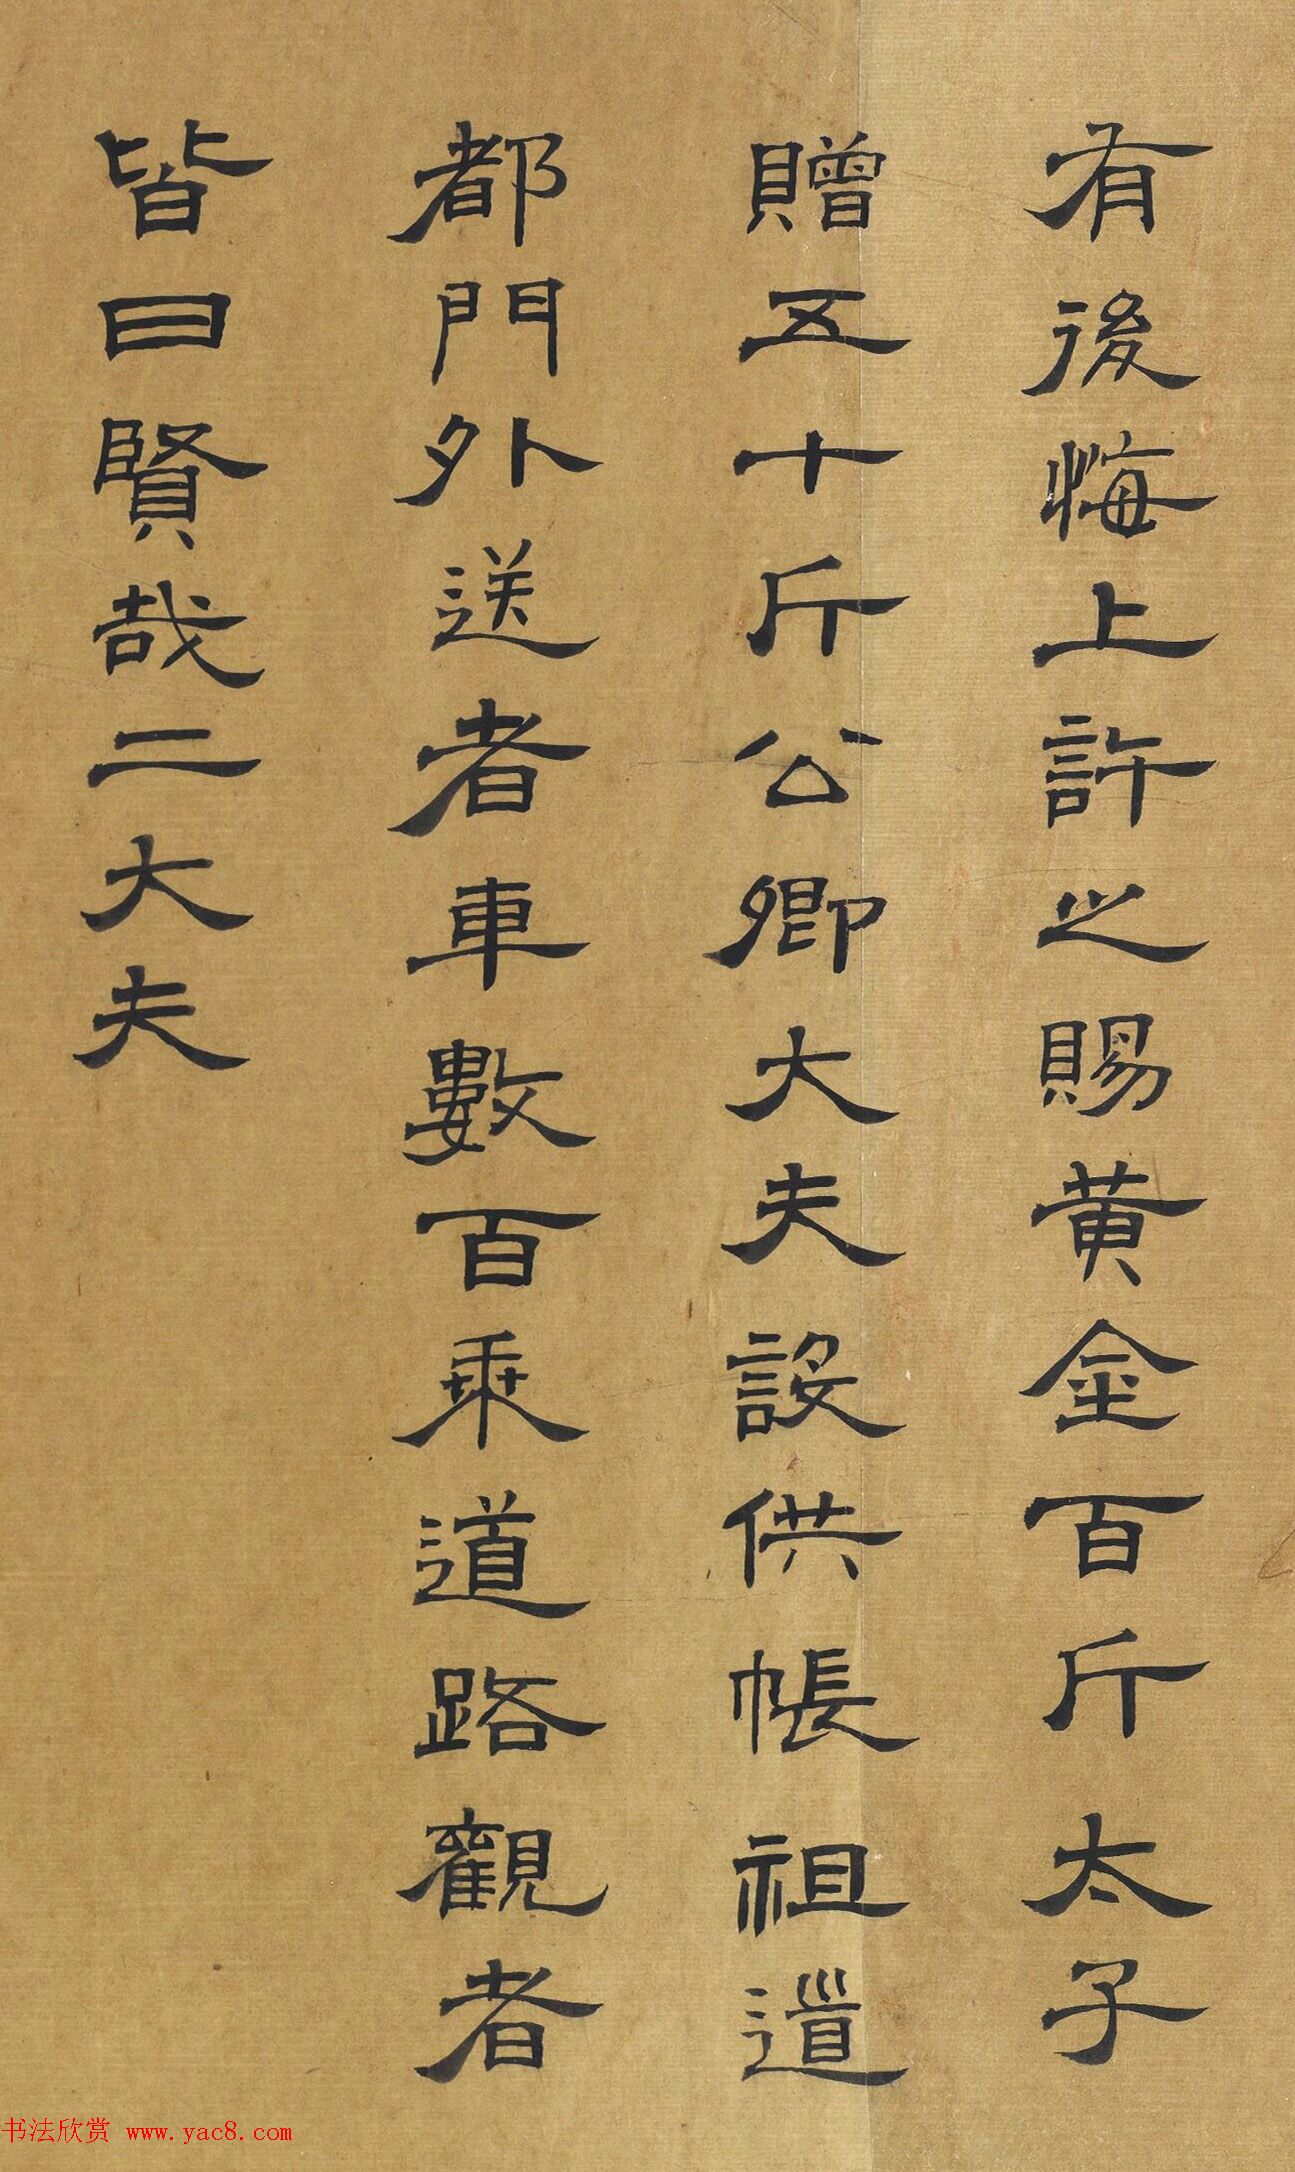 有後悔上許之賜黄金百斤太子
贈五十斤公卿大夫設供帳祖道
都門外送者車數百乘道路觀者
皆曰賢哉二大夫
书法欣赏 www.yac8.com